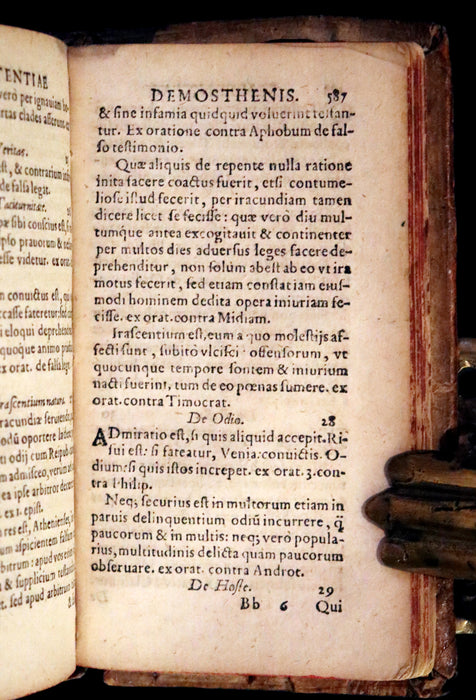 TENTIAE
verò per ignauiam
clades
Veritas.
est, & contrarium
de falsa legat.
Taciturnitas.
sibi conscius est,
ipso prauorum & tedesse
videtur. ex orat.
convictus est, quo
fateretur,
eloqui
quoque animo
ex orat. de falsa
Irascentium natura.
iracundiæ
odij cum Repub.
admisceo, verum
ipse arbitror
ex 1. epist.
res est, Athenienses,
aspicientem falsum
arbitrum: apud vos
& supplicium
sed apud arbitrum
DEMOSTHENIS. 587
& sine infamia quidquid voluerint testantur.
Ex oratione contra Aphobum de falso
testimonio.
Quæ aliquis de repente nulla ratione
inita facere coactus fuerit, etsi contumeliose
istud fecerit, per iracundiam tamen
dicere licet se fecisse: quæ verò diu multumque
antea excogitauit & continenter
per multos dies aduersus leges facere deprehenditur,
non solum abest ab eo vt ira
motus fecerit, sed etiam constat iam eiusmodi
hominem dedita opera iniuriam fecisse.
ex orat. contra Midiam.
Irascentium est, eum a quo molestijs affecti
sunt, subitò vlcisci: offensorum, vt
quocunque tempore sontem & iniurium
nacti fuerint, tum de eo pœnas sumere. ex
orat. contra Timocrat.
De Odio. 28
ADmiratio est, si quis aliquid accepit. Risui
est: si fateatur, Venia: conuictis. Odium:
si quis istos increpet. ex orat. 3. contra
Philip.
Neq; securius est in multorum etiam in
paruis delinquentium odiū incurrere, q̄
paucorum & in multis: neq; verò popularius,
multitudinis delicta quam paucorum
obseruare. ex orat. contra Androt.
De Hoste. 29
Bb 6 Qui